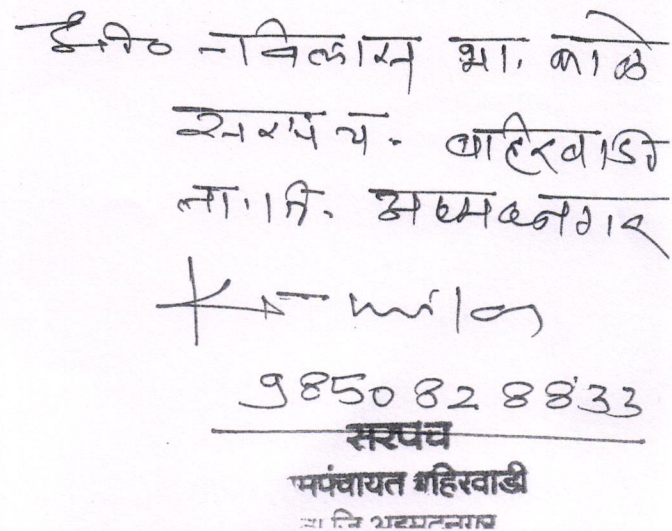 विलास भा. काळे
सरपंच. बहिरवाडी
ता.जि. अहमदनगर
9850828833
सरपंच
मपंचायत बहिरवाडी
ता जि अहमदनगर